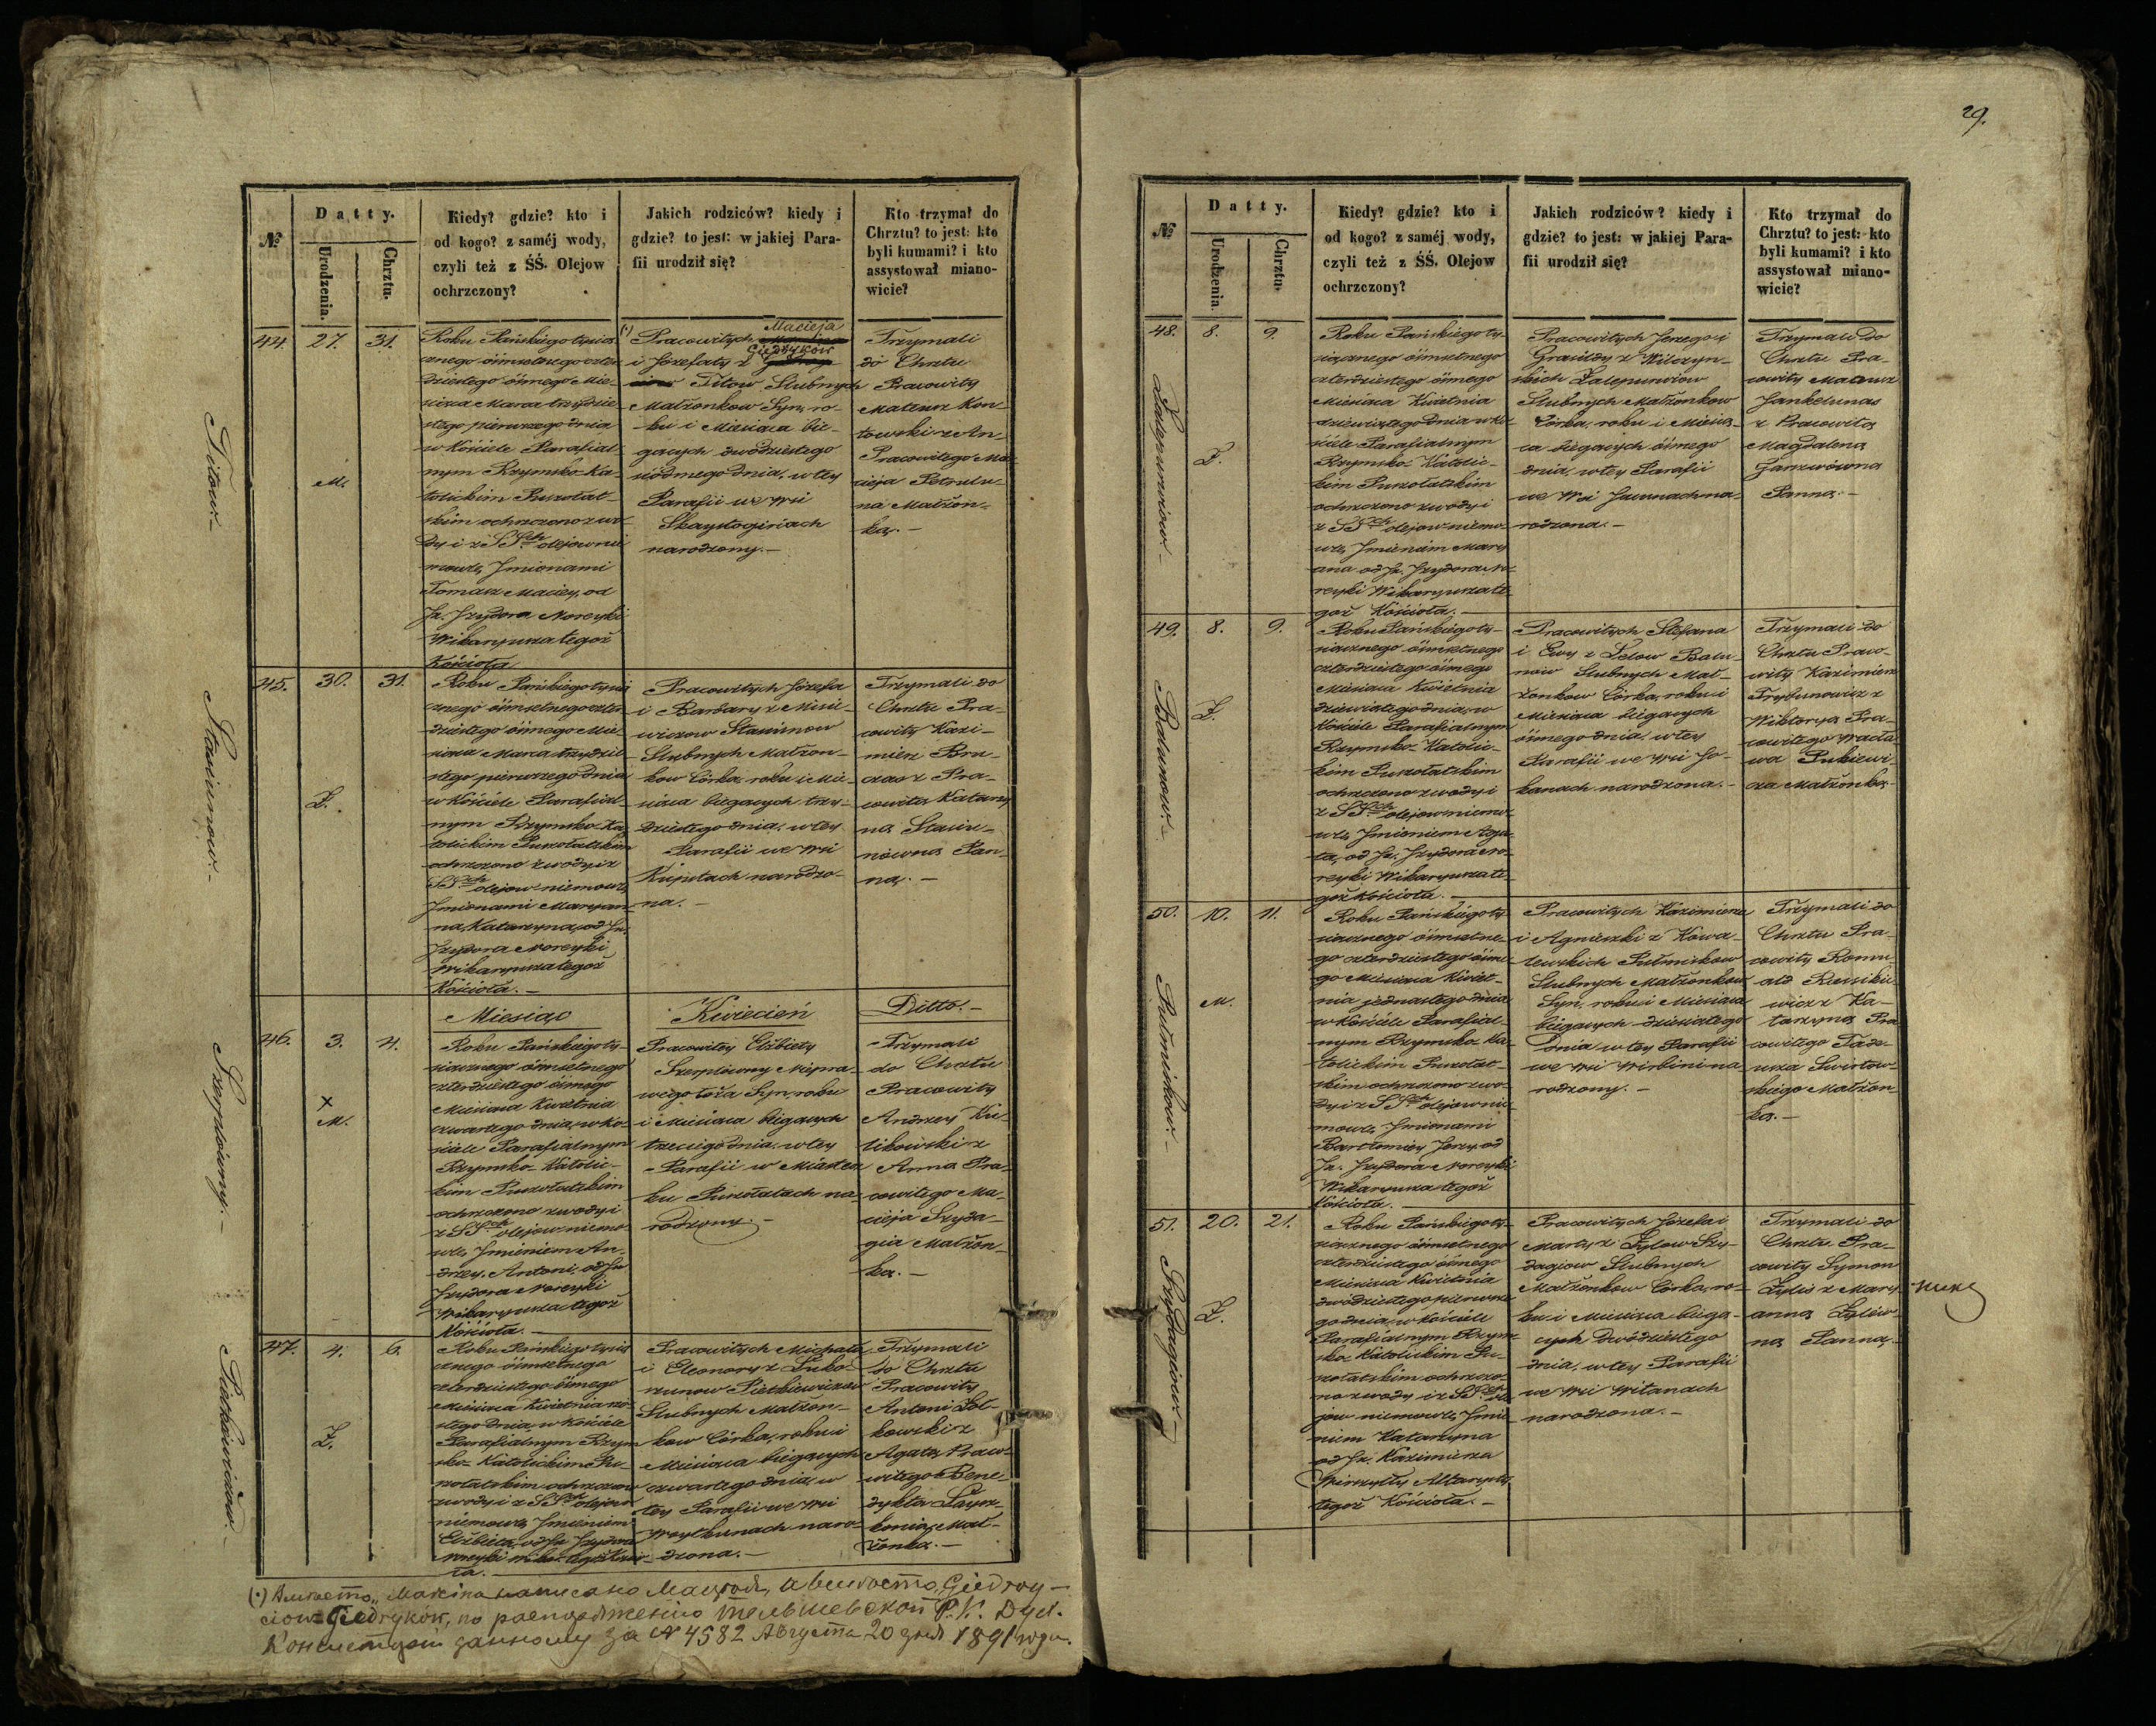 29.
№
Datty.
Urodzenia.
Chrztu.
Kiedy? gdzie? kto i
od kogo? z saméj wody,
czyli też z ŚŚ. Olejow
ochrzczony?
Jakich rodziców? kiedy i
gdzie? to jest: w jakiej Para-
fii urodził się?
Kto trzymał do
Chrztu? to jest: kto
byli kumami? i kto
assystował miano-
wicie?
Titow.-
44. 27. 31.
M.
Roku Pańskiego tysią-
cznego óśmsetnego czter-
dziestego ósmego Mie-
siąca Marca trzydzie-
stego pierwszego dnia
w Kościele Parafial-
nym Rzymsko-Ka-
tolickim Puszołat-
skim ochrzczono z wo-
dy i z SSch olejow nie-
mowlę Jmionami
Tomasz Maciey, od
Jx. Jzydora Noreyki
Wikaryusza tegoż
Kościoła
(*) Pracowitych Macieja
i Józefaty z Giedryków
Titow Slubnych
Małżonkow Syn, ro-
ku i Miesiąca bie-
gących dwódziestego
siódmego dnia, w tey
Parafii we Wsi
Skaystogiriach
narodzony.-
Trzymali
do Chrztu
Pracowity
Mateusz Kon-
towski z An-
Pracowitego Ma-
cieja Petrulu-
na Małżon-
ką.-
Stasiunow.-
45. 30. 31.
Ż.
Roku Pańskiego tysią
cznego óśmsetnego czter-
dziestego ósmego Mie-
siąca Marca trzydzie-
stego pierwszego dnia
w Kościele Parafial-
nym Rzymsko-Ka-
tolickim Puszołatskim
ochrzczono z wody i z
SSch olejow niemowlę
Jmionami Maryan-
na, Katarzyna, od Jx.
Jzydora Noreyki
Wikaryusza tegoż
Kościoła.-
Pracowitych Józefa
i Barbary z Misie-
wiczow Stasiunow
Slubnych Małżon-
kow Córka, roku i Mie-
siąca biegących trzy-
dziestego dnia, w tey
Parafii we Wsi
Kupstach narodzo-
na.-
Trzymali do
Chrztu Pra-
cowity Kazi-
mierz Bru-
czas z Pra-
cowitą Katarzy
ną Stasiu-
nówną Pan-
ną.-
Miesiąc Kwiecień Ditto.-
Szerpłówny.-
46. 3. 4.
x
M.
Roku Pańskiego ty-
siącznego óśmsetnego
czterdziestego ósmego
Miesiąca Kwietnia
czwartego dnia, w Ko-
ściele Parafialnym
Rzymsko-Katolic-
kim Puszołatskim
ochrzczono z wody i
z SSch olejow niemo-
wlę Jmieniem An-
drzey, Antoni, od Jx.
Jzydora Noreyki
Wikaryusza tegoż
Kościoła.-
Pracowitey Elżbiety
Szerpłówny Niepra-
wego łoża Syn, roku
i Miesiąca biegących
trzeciego dnia, w tey
Parafii w Miastecz
ku Puszołatach na-
rodzony.-
Trzymali
do Chrztu
Pracowity
Andrzey Ku-
likowski z
Anną Pra-
cowitego Ma-
cieja Szyda-
gia Małżon-
ką.-
Pietkiewiczow.
47. 4. 6.
Ż.
Roku Pańskiego tysią
cznego óśmsetnego
czterdziestego ósmego
Miesiąca Kwietnia szó-
stego dnia, w Kościele
Parafialnym Rzym-
sko-Katolickim Pu-
szołatskim ochrzczono
z wody i z SSch olejow
niemowlę Jmieniem
Elżbieta, od Jx Jzydora
Noreyki Wika. tegoż Kościo-
ła.-
Pracowitych Michała
i Eleonory z Łuko-
szunow Pietkiewiczow
Slubnych Małżon-
kow Córka, roku i
Miesiąca biegących
czwartego dnia, w
tey Parafii we Wsi
Woytkunach naro-
dzona.-
Trzymali
do Chrztu
Pracowity
Antoni Żoł-
kowski z
Agatą Praco-
witego Bene-
dykta Layz-
konia, Mał-
żonką.-
(*) Вместо „Marcina написано Мацѣя, а вместо „Giedroy-
ciow Giedryków, по распоряжению Тельшевской Р. К. Дух.
Консистории данному за № 4582 Августа 20 дня 1891 года.
№
Datty.
Urodzenia.
Chrztu.
Kiedy? gdzie? kto i
od kogo? z saméj wody,
czyli też z ŚŚ. Olejow
ochrzczony?
Jakich rodziców? kiedy i
gdzie? to jest: w jakiej Para-
fii urodził się?
Kto trzymał do
Chrztu? to jest: kto
byli kumami? i kto
assystował miano-
wicie?
Zalepunwiow.-
48. 8. 9.
Ż.
Roku Pańskiego ty-
siącznego óśmsetnego
czterdziestego ósmego
Miesiąca Kwietnia
dziewiątego dnia w Ko-
ściele Parafialnym
Rzymsko-Katolic-
kim Puszołatskim
ochrzczono z wody i
z SSch olejow niemo-
wlę, Jmieniem Mary
ana od Jx. Jzydora No
reyki Wikaryusza te-
goż Kościoła.-
Pracowitych Jerzego i
Graxildy z Wilczyn-
skich Zalepunwiow
Slubnych Małżonkow
Córka, roku i Miesią-
ca biegących ósmego
dnia, w tey Parafii
we Wsi Jasunach na-
rodzona.-
Trzymali do
Chrztu Pra-
cowity Mateusz
Jankelunas
z Pracowitą
Magdaleną
Ganzwówną
Panną.-
Balunow.-
49. 8. 9.
Ż.
Roku Pańskiego ty-
siącznego óśmsetnego
czterdziestego ósmego
Miesiąca Kwietnia
dziewiątego dnia, w
Kościele Parafialnym
Rzymsko-Katolic-
kim Puszołatskim
ochrzczono z wody i
z SSch olejow niemo-
wlę Jmieniem Aga-
ta, od Jx. Jzydora No-
reyki Wikaryusza te-
goż Kościoła.-
Pracowitych Stefana
i Ewy z Lelow Balu-
now Slubnych Mał-
żonkow Córka, roku i
Miesiąca biegących
ósmego dnia, w tey
Parafii we Wsi Jo-
kanach narodzona.-
Trzymali do
Chrztu Praco-
wity Kazimierz
Trybunowicz z
Wiktoryą Pra-
cowitego Wacła-
wa Pukiewi-
cza Małżonką.-
Putmińkow.-
50. 10. 11.
M.
Roku Pańskiego ty-
siącznego óśmsetne-
go czterdziestego ósme-
go Miesiąca Kwiet-
nia jednastego dnia
w Kościele Parafial-
nym Rzymsko-Ka-
tolickim Puszołat-
skim ochrzczono z wo-
dy i z SSch olejow nie-
mowlę, Jmionami
Bartłomiey Jerzy, od
Jx. Jzydora Noreyki
Wikaryusza tegoż
Kościoła.-
Pracowitych Kazimierza
i Agnieszki z Kowa-
lewskich Putminkow
Slubnych Małżonkow
Syn, roku i Miesiąca
biegących dziesiątego
dnia, w tey Parafii
we Wsi Wirbini na-
rodzony.-
Trzymali do
Chrztu Pra-
cowity Romu-
ald Russikie-
wicz z Ka-
tarzyną Pra
cowitego Tade-
usza Swirtow-
skiego Małżon-
ką.-
Szydagiow.-
51. 20. 21.
Ż.
Roku Pańskiego ty-
siącznego óśmsetnego
czterdziestego ósmego
Miesiąca Kwietnia
dwódziestego pierwsze-
go dnia, w Kościele
Parafialnym Rzym-
sko-Katolickim Pu-
szołatskim ochrzczo-
no z wody i z SSch ole-
jow niemowlę, Jmie-
niem Katarzyna
od Jx. Kazimierza
Wirszyłły Altarysty
tegoż Kościoła.-
Pracowitych Józefa i
Marty z Żylow Szy-
dagiow Slubnych
Małżonkow Córka, ro-
ku i Miesiąca biega-
cych dwódziestego
dnia, w tey Parafii
we Wsi Witanach
narodzona.-
Trzymali do
Chrztu Pra-
cowity Symon
Żylis z Mary-
anną Żylów-
ną Panną.